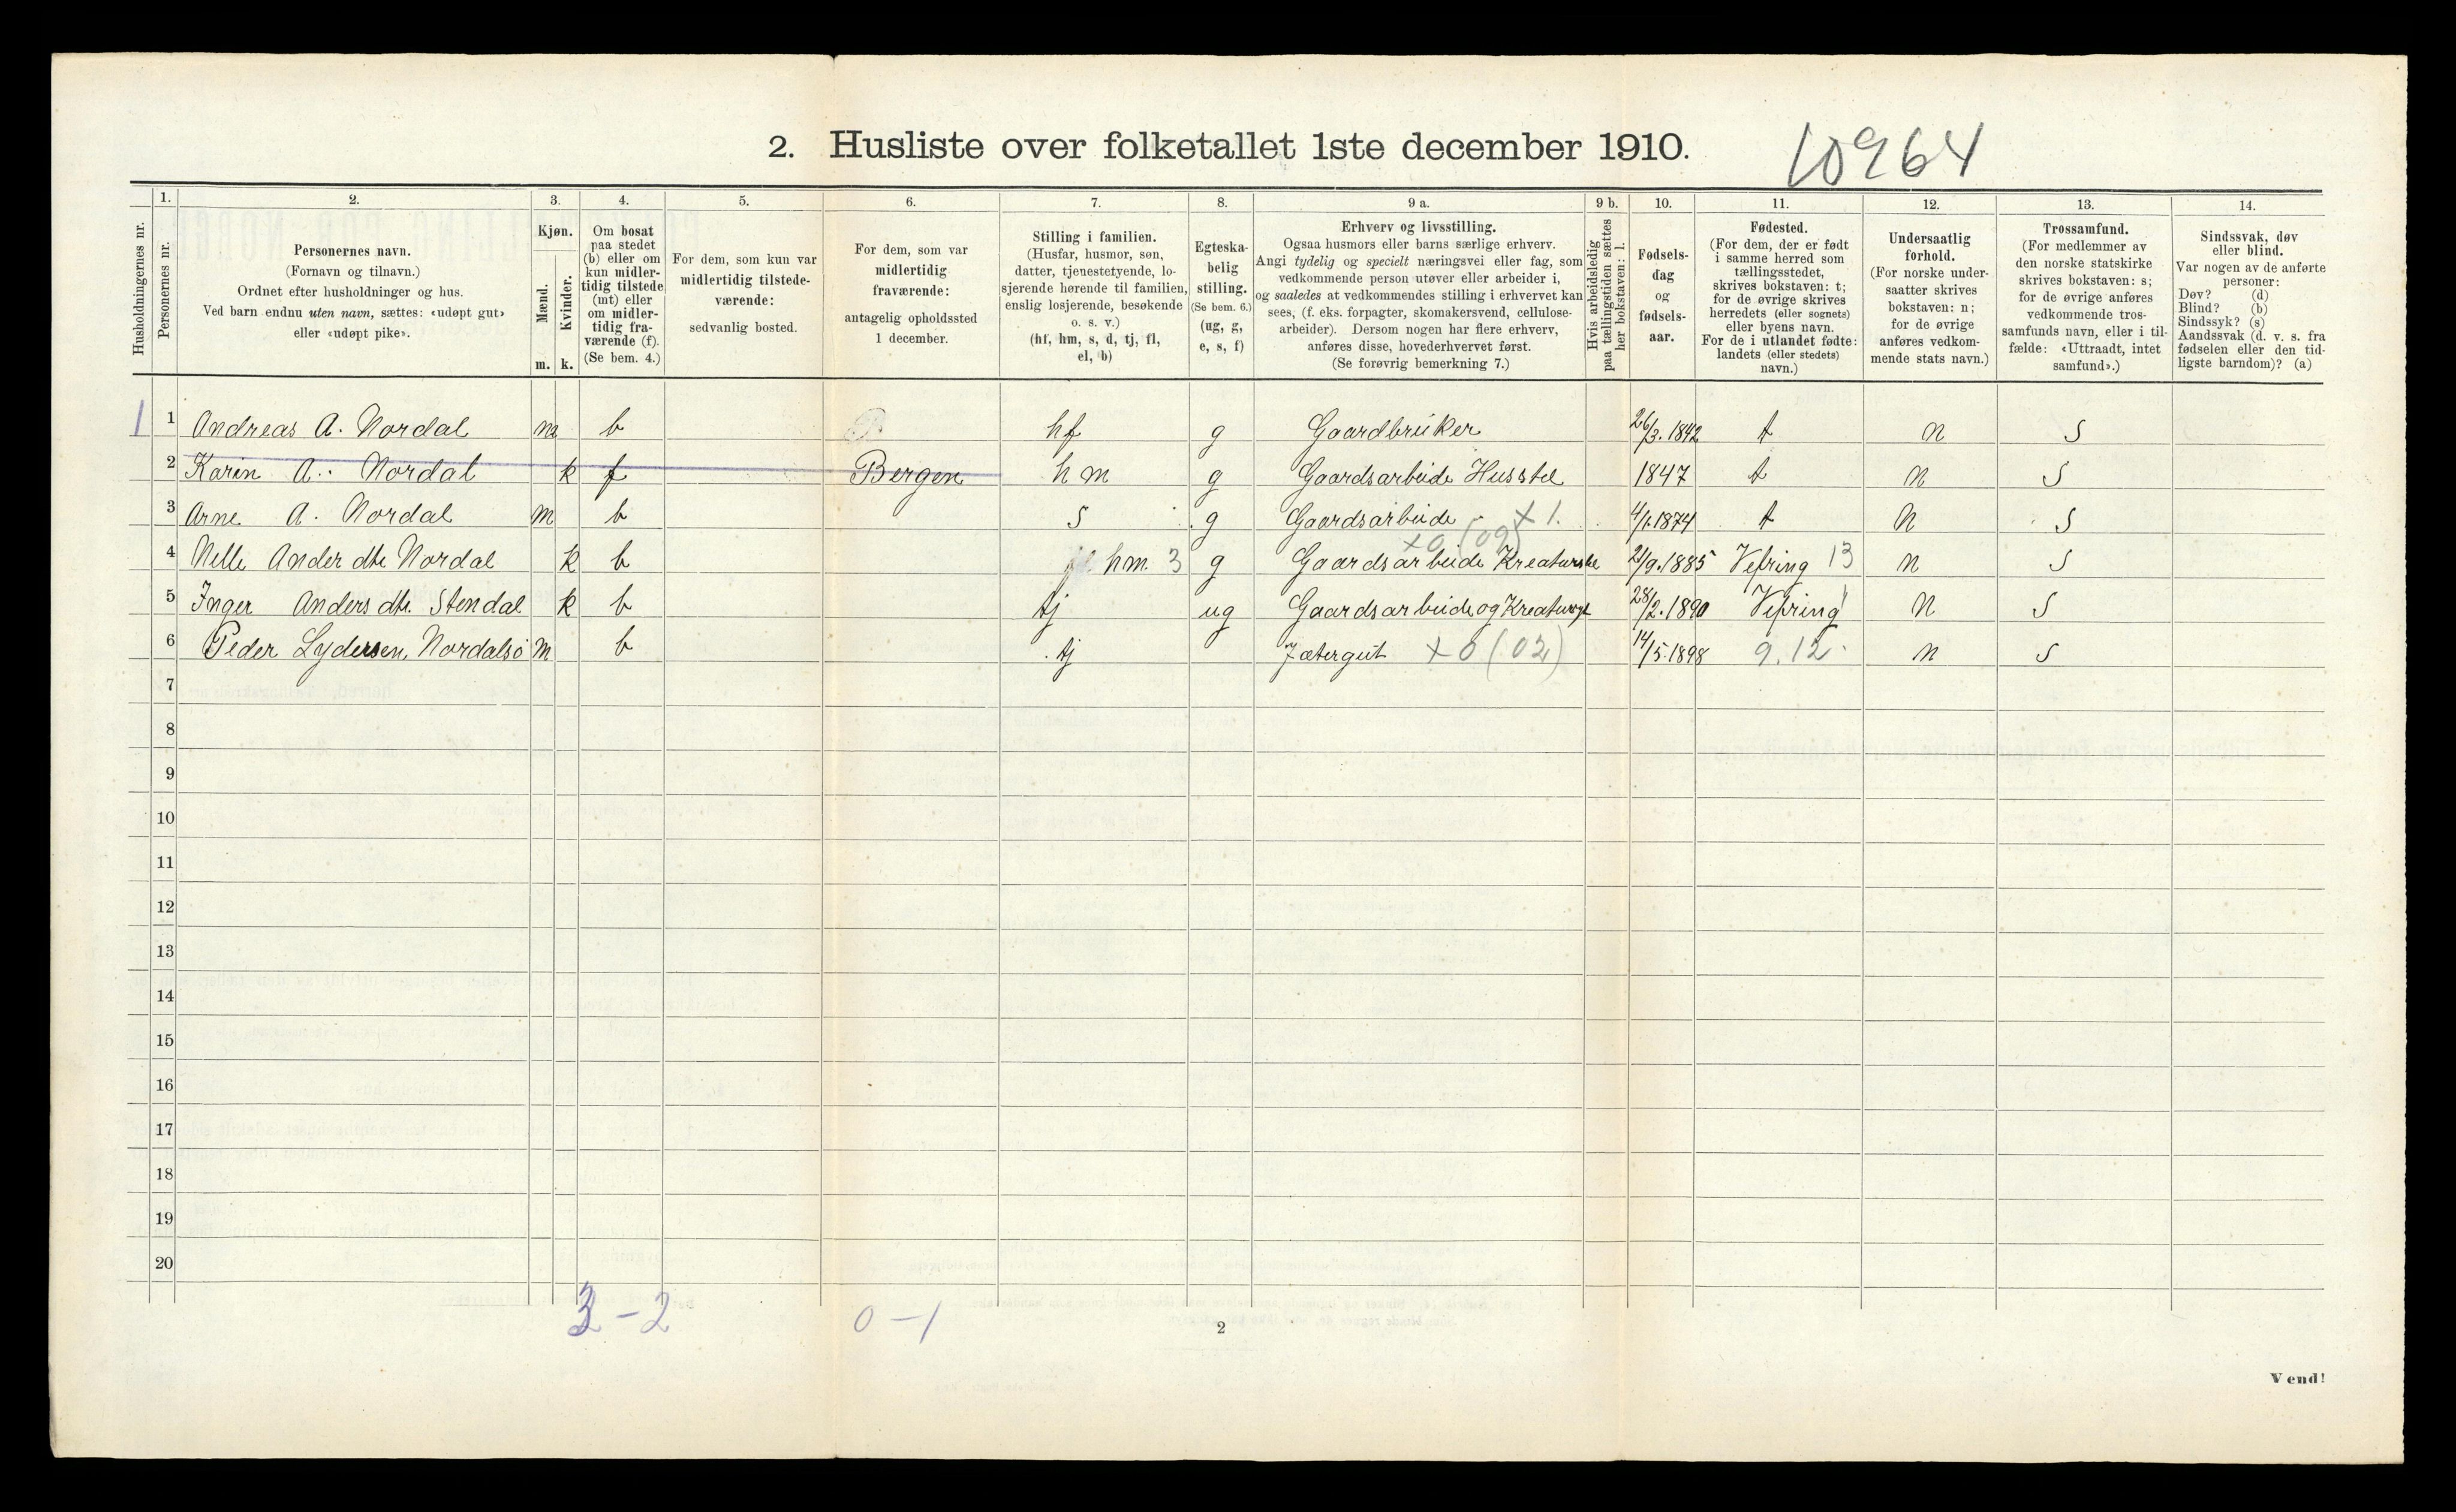 2. Husliste over folketallet 1ste december 1910.
10964
Husholdningernes nr.
1.
Personernes nr.
2.
Personernes navn.
(Fornavn og tilnavn.)
Ordnet efter husholdninger og hus.
Ved barn endnu uten navn, sættes: «udøpt gut»
eller «udøpt pike».
3.
Kjøn.
Mænd.
Kvinder.
m. k.
4.
Om bosat
paa stedet
(b) eller om
kun midler-
tidig tilstede
(mt) eller
om midler-
tidig fra-
værende (f).
(Se bem. 4.)
5.
For dem, som kun var
midlertidig tilstede-
værende:
sedvanlig bosted.
6.
For dem, som var
midlertidig
fraværende:
antagelig opholdssted
1 december.
7.
Stilling i familien.
(Husfar, husmor, søn,
datter, tjenestetyende, lo-
sjerende hørende til familien,
enslig losjerende, besøkende
o. s. v.)
(hf, hm, s, d, tj, fl,
el, b)
8.
Egteska-
belig
stilling.
(Se bem. 6.)
(ug, g,
e, s, f)
9 a.
Erhverv og livsstilling.
Ogsaa husmors eller barns særlige erhverv.
Angi tydelig og specielt næringsvei eller fag, som
vedkommende person utøver eller arbeider i,
og saaledes at vedkommendes stilling i erhvervet kan
sees, (f. eks. forpagter, skomakersvend, cellulose-
arbeider). Dersom nogen har flere erhverv,
anføres disse, hovederhvervet først.
(Se forøvrig bemerkning 7.)
9 b.
Hvis arbeidsledig
paa tællingstiden sættes
her bokstaven: l.
10.
Fødsels-
dag
og
fødsels-
aar.
11.
Fødested.
(For dem, der er født
i samme herred som
tællingsstedet,
skrives bokstaven: t;
for de øvrige skrives
herredets (eller sognets)
eller byens navn.
For de i utlandet fødte:
landets (eller stedets)
navn.)
12.
Undersaatlig
forhold.
(For norske under-
saatter skrives
bokstaven: n;
for de øvrige
anføres vedkom-
mende stats navn.)
13.
Trossamfund.
(For medlemmer av
den norske statskirke
skrives bokstaven: s;
for de øvrige anføres
vedkommende tros-
samfunds navn, eller i til-
fælde: «Uttraadt, intet
samfund».)
14.
Sindssvak, døv
eller blind.
Var nogen av de anførte
personer:
Døv? (d)
Blind? (b)
Sindssyk? (s)
Aandssvak (d. v. s. fra
fødselen eller den tid-
ligste barndom)? (a)
1 1 Andreas A. Nordal m b hf g Gaardbruker 26/3.1842 t n S
2 Karin A. Nordal k f Bergen hm g Gaardsarbeide Husstel 1847 t n S
3 Arne A. Nordal m b s g Gaardsarbeide x 1. 4/1.1874 t n S
x0 (02)
4 Nelle Anderdtr Nordal k b hm 3 g Gaardsarbeide Kreaturste 21/9.1885 Vefring 13 n S
5 Inger Andersdtr. Stendal k b tj ug Gaardsarbeide og Kreaturst 28/2.1890 Vefring " n S
6 Peder Lydersen, Nordalsø m b tj Jætergut x 0 (02) 14/5.1898 9.12. n S
7
8
9
10
11
12
13
14
15
16
17
18
19
20
3 - 2
0 - 1
2
Vend!